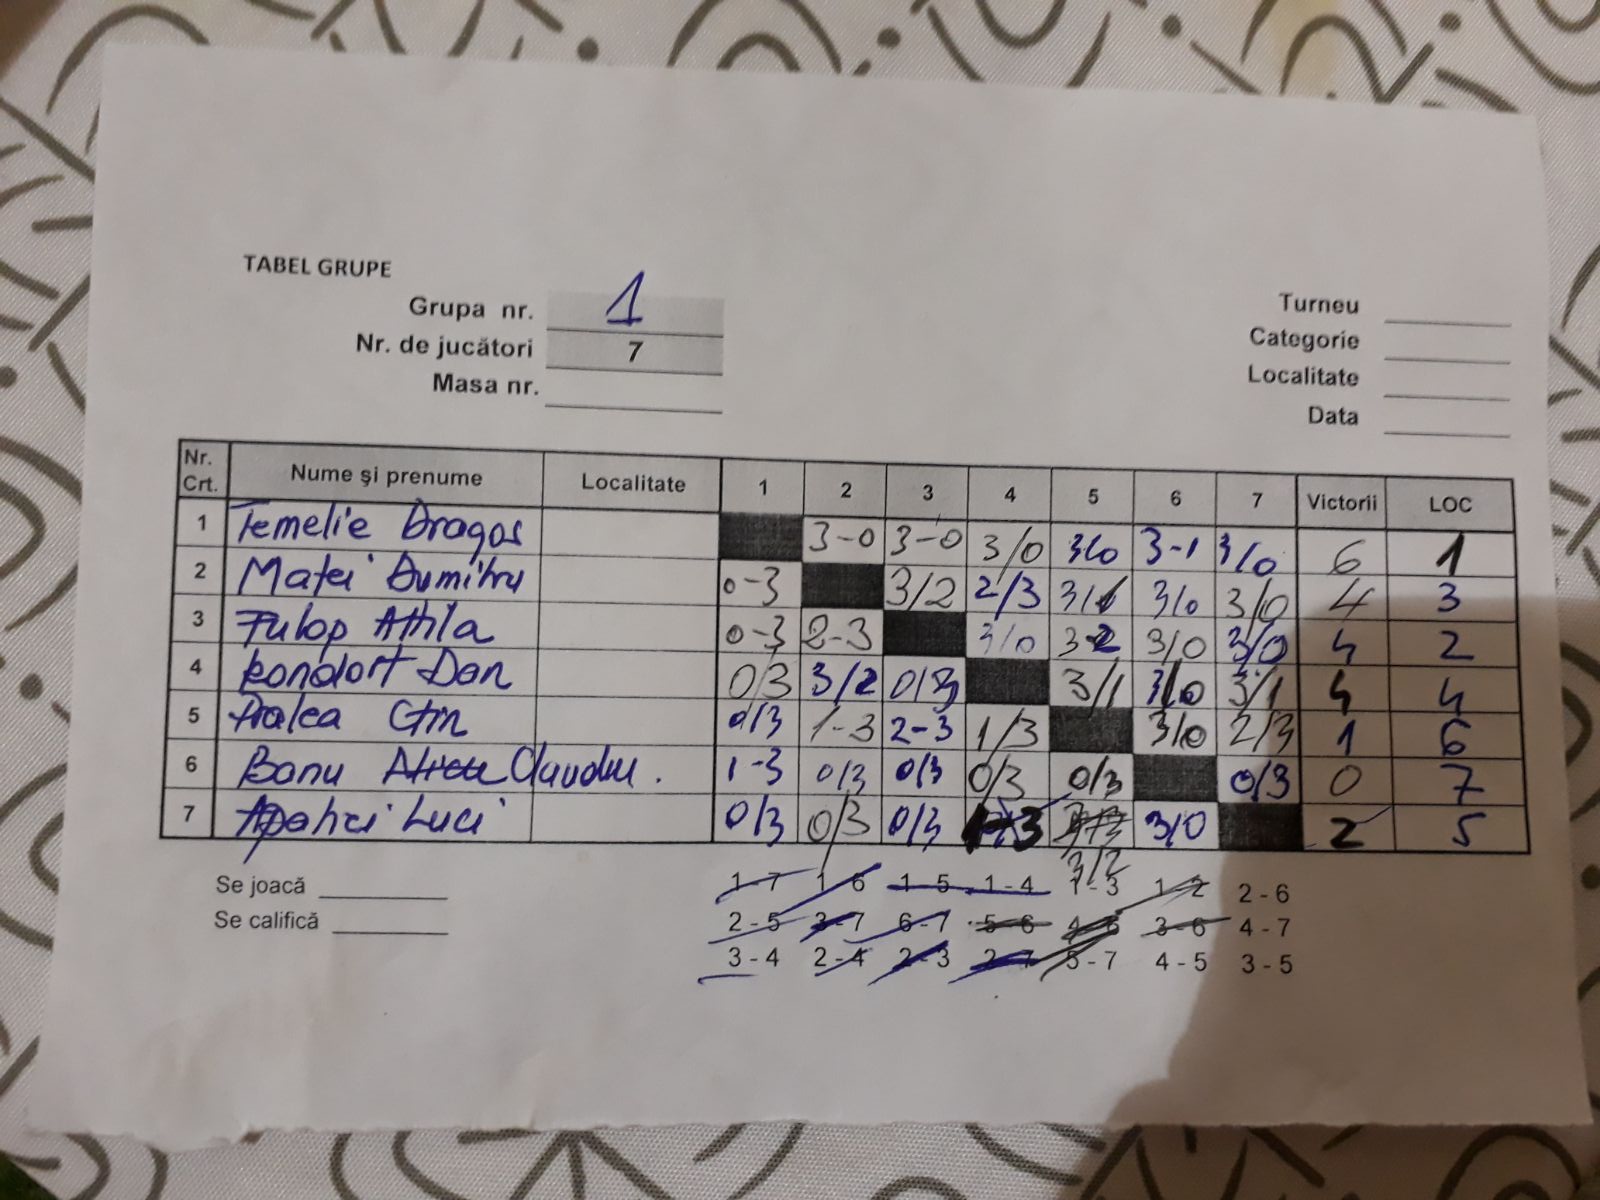 TABEL GRUPE
Grupa nr. 1
Nr. de jucători 7
Masa nr.
Turneu
Categorie
Localitate
Data
Nr. Crt. Nume și prenume Localitate 1 2 3 4 5 6 7 Victorii LOC
1 Temelie Dragos 3-0 3-0 3/0 3/0 3-1 3/0 6 1
2 Matei Dumitru 0-3 3/2 2/3 3/1 3/0 3/0 4 3
3 Fulop Attila 0-3 2-3 3/0 3-2 3/0 3/0 4 2
4 Dan 0/3 3/2 0/3 3/1 3/0 3/1 4 4
5 0/3 1-3 2-3 1/3 3/0 2/3 1 6
6 Banu Claudiu. 1-3 0/3 0/3 0/3 0/3 0/3 0 7
7 Luci 0/3 0/3 0/3 1-3 3/0 2 5
3/2
Se joacă 1-7 1-6 1-5 1-4 1-3 1-2 2-6
Se califică 2-5 3-7 6-7 5-6 4-6 3-6 4-7
3-4 2-4 2-3 2-7 5-7 4-5 3-5